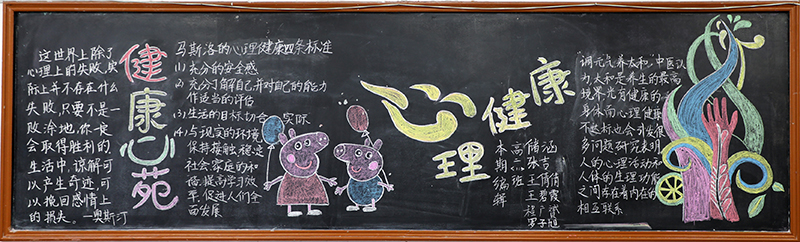 这世界上除了
心理上的失败,实
际上并不存在什么
失败,只要不是一
败涂地,你一定
会取得胜利的
生活中,谅解可
以产生奇迹,可
以挽回感情上
的损失。—奥斯汀
健康心苑
马斯洛的心理健康四条标准
(1)充分的安全感
(2)充分了解自己并对自己的能力
作适当的评估
(3)生活的目标切合实际
(4)与现实的环境
保持接触,稳定
社会家庭的和
高学习效
率,促进人们全
面发展
心理健康
本期编辑
高六班
储涵
张吉
王倩倩
王碧霞
程广
罗子
"调元气养太和"中医认
力太和是养生的最高
境界,光有健康的
身体而心理健康
不达标也会引发很
多问题研究表明
人的心理活动和
人体的生理功能
之间存在着内在的
相互联系